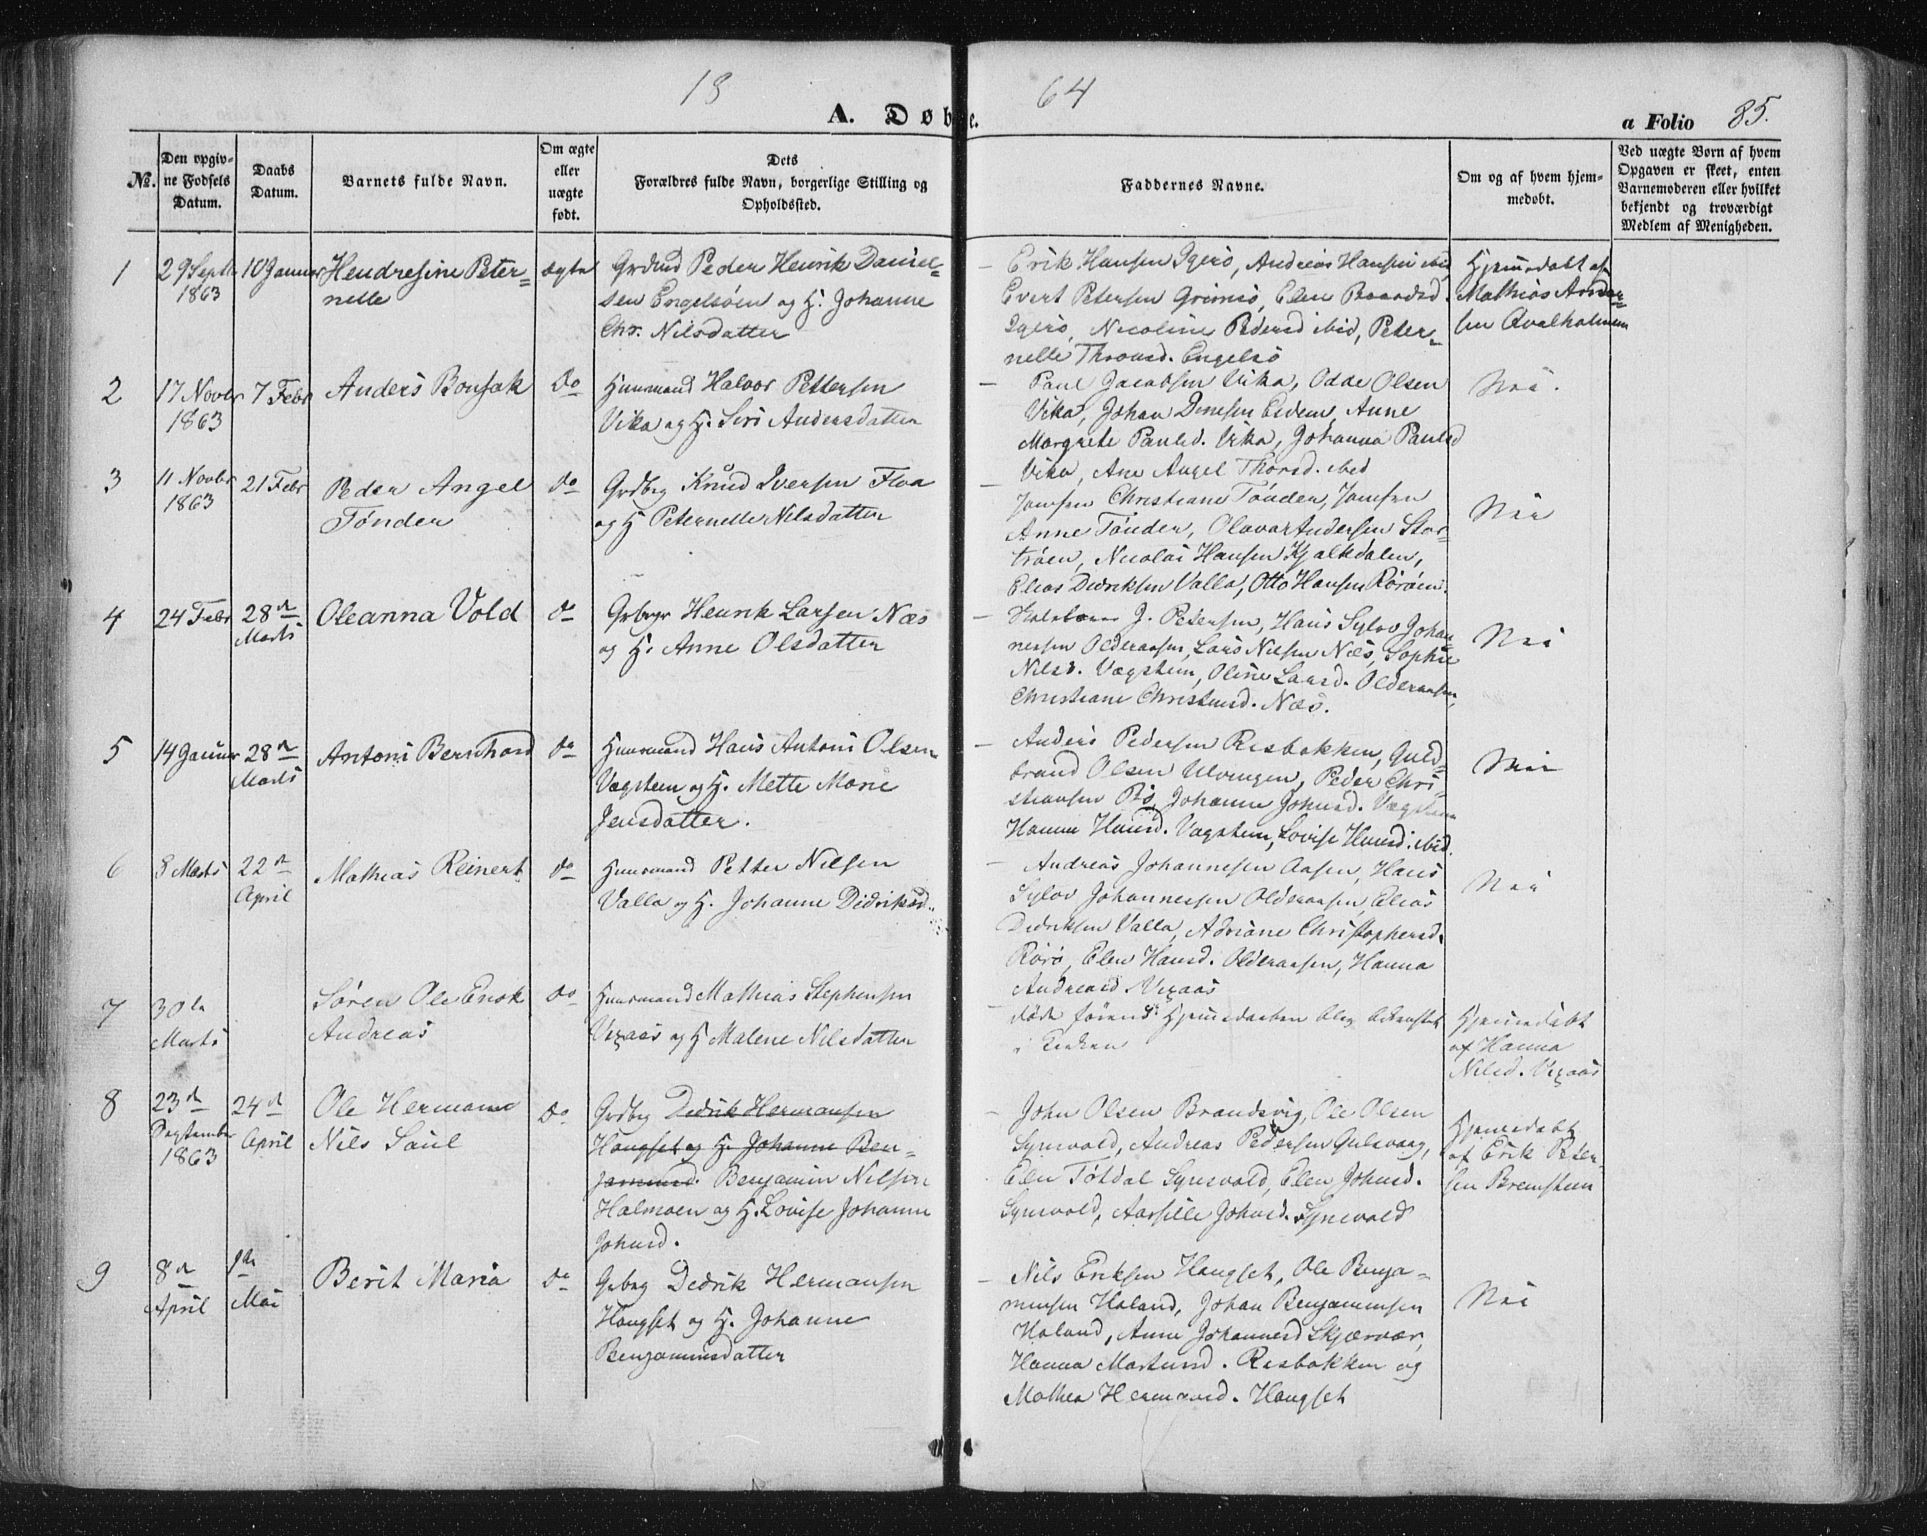 18 64
A. Døbte.
a Folio 85.
No.
Den opgiv-
ne Fødsels
Datum.
Daabs
Datum.
Barnets fulde Navn.
Om ægte
eller
uægte
født.
Dets
Forældres fulde Navn, borgerlige Stilling og
Opholdssted.
Faddernes Navne.
Om og af hvem hjem-
medøbt.
Ved uægte Børn af hvem
Opgaven er skeet, enten
Barnemoderen eller hvilket
bekjendt og troværdigt
Medlem af Menigheden.
1
29 Septb
1863
10 Januar
Hendresine Peter-
nelle
ægte
Peder Henrik Daniel-
sen Engelsöen og H. Johanne
Chr. Nilsdatter
Erik Hansen Igerö, Andreas Hansen ibid
Evert Petersen Grimsö, Elen Baardsd.
Igerö, Nicoline Pedersd ibid, Peter-
nelle Thronsd. Engelsö
Hjemmedøbt af
Mathias Ander-
sen Qvalholmen
2
17 Novbr
1863
7 Febr
Anders Bonsak
do
Huusmand Halvor Pettersen
Vika og H. Siri Andersdatter
Paul Jacobsen Vika, Odde Olsen
Vika, Johan Anne
Margrete Paulsd. Vika, Johanna Paulsd
Vika, Ane Angel Thorsd. ibid
Nei.
3
11 Novbr
1863
21 Febr
Peder Angel
Tönder
do
Grdbrg Knud Iversen Floa
og H Peternelle Nilsdatter
Jomfru Christiane Tönder, Jomfru
Anne Tönder, Olavar Andersen Stor-
tröen, Nicolai Hansen Kjalkdalen,
Elias Didriksen Valla, Otto Hansen Röröen.
Nei
4
24 Febr
28de
Marts
Oleanna Vold
do
Henrik Larsen Næs
og H. Anne Olsdatter
J. Petersen, Hans Sylov Johan
nesen Olderaasen, Lars Nilsen Næs, Sophie
Nilsd. Vægstein, Oline Larsd. Olderaasen,
Christiane Christensd. Næs.
Nei
5
14 Januar
28de
Marts
Antoni Bernhard
do
Huusmand Hans Antoni Olsen
Vægstein og H. Mette Marie
Jensdatter.
Anders Pedersen Risbakken, Guld-
brand Olsen Ulvingen, Peder Chri-
stiansen Bö, Johanne Johnsd. Vægstein
Hanna Hansd. Vægstein, Lovise Hansd. ibid.
Nei
6
8 Marts
22de
April
Mathias Reinert
do
Huusmand Petter Nilsen
Valla og H. Johanne Didriksd.
Andreas Johannesen Aasen, Hans
Sylov Johannessen Olderaasen, Elias
Didriksen Valla, Adriane Christophersd.
Rörö, Elen Hansd. Olderaasen, Hanna
Andreasd Vexaas
Nei
7
30te
Marts
Sören Ole Enok
Andreas
do
Huusmand Mathias Stephensen
Vexaas og H Malene Nilsdatter
döde förend Hjemmedaaben blev bekræftet
i Kirken
Hjemmedøbt
af Hanna
Nilsd. Vexaas
8
23de
September
1863
24de
April
Ole Hermann
Nils Saul
do
Grdbrg Didrik Hermansen
Haugset og H. Johanne Ben-
jaminsd. Benjamin Nilsen
Halmoen og H. Lovise Johanne
Johnsd.
John Olsen Brandsvig, Ole Olsen
Synsvold, Andreas Pedersen Gulsvaag,
Elen Totdal Synsvold, Elen Johnsd.
Synsvold, Aarsille Johnsd. Synsvold
Hjemmedøbt
af Erik Peter-
sen Bremstein
9
8de
April
1ste
Mai
Berit Maria
do
Didrik Hermansen
Haugset og H. Johanne
Benjaminsdatter
Nils Eriksen Haugset, Ole Benja-
minsen Haland, Johan Benjaminsen
Haland, Anne Johannesd Skjærvær,
Hanna Martinsd. Risbakken og
Mathea Hermansd. Haugset
Nei